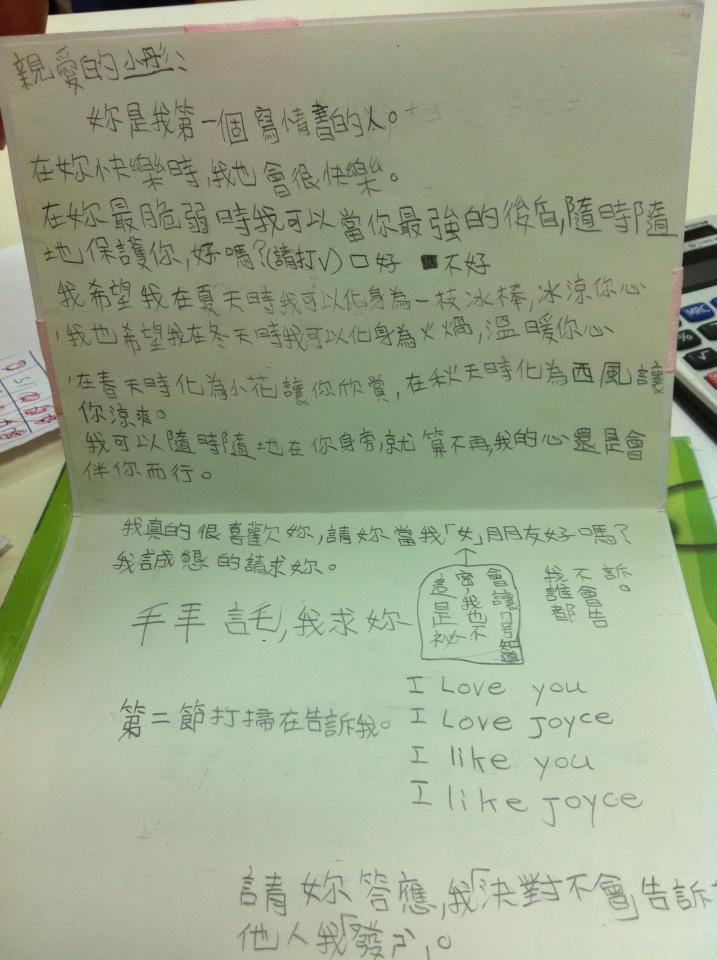 親愛的小彤:
妳是我第一個寫情書的人。
在妳快樂時,我也會很快樂。
在妳最脆弱時我可以當你最強的後盾,隨時隨
地保護你,好嗎?(請打V)□好 ■不好
我希望我在夏天時我可以化身為一枝冰棒,冰涼你心
,我也希望我在冬天時我可以化身為火鍋,溫暖你心
,在春天時化為小花讓你欣賞,在秋天時化為西風讓
你涼爽。
我可以隨時隨地在你身旁,就算不再,我的心還是會
伴你而行。
我真的很喜歡妳,請妳當我「女」朋友好嗎?
我誠懇的請求妳。
這是祕
密,我也不
會讓1號知道
我誰都
不會告
訴。
我求妳
I Love you
第二節打掃在告訴我。
I Love Joyce
I like you
I like Joyce
請妳答應,我「決對不會」告訴
他人我「發